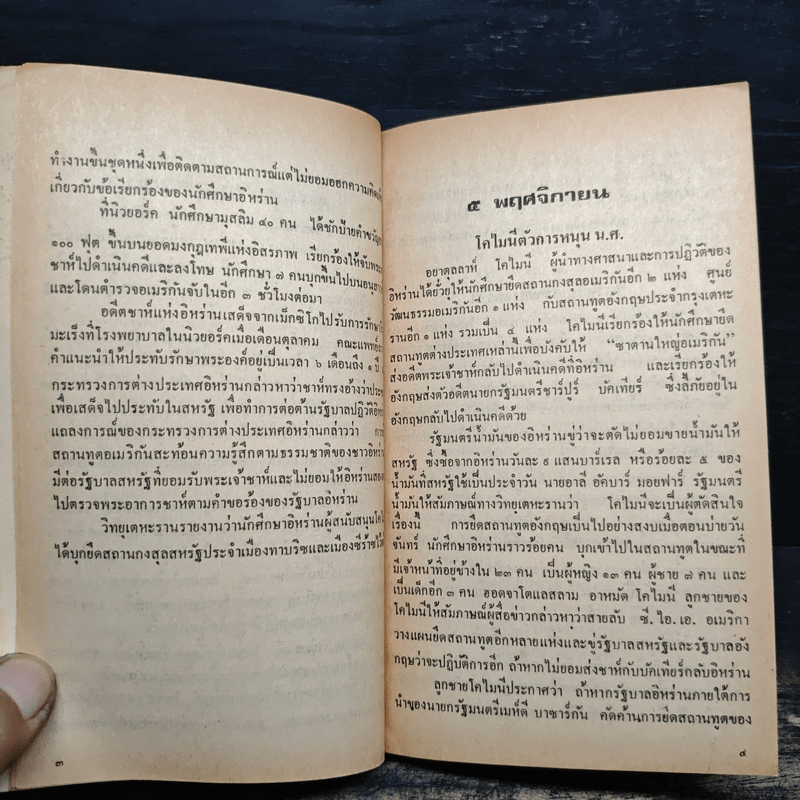 ทำงานขึ้นชุดหนึ่งเพื่อติดตามสถานการณ์แต่ไม่ยอมออกความคิดเห็น
เกี่ยวกับข้อเรียกร้องของนักศึกษาอิหร่าน
ที่นิวยอร์ค นักศึกษามุสลิม ๔๐ คน ได้ชักป้ายคำขวัญ
๑๐๐ ฟุต ขึ้นบนยอดมงกุฎเทพีแห่งอิสรภาพ เรียกร้องให้จับพระ
ชาห์ไปดำเนินคดีและลงโทษ นักศึกษา ๗ คนบุกขึ้นไปบนอนุสา
และโดนตำรวจอเมริกันจับในอีก ๓ ชั่วโมงต่อมา
อดีตชาห์แห่งอิหร่านเสด็จจากเม็กซิโกไปรับการรักษา
มะเร็งที่โรงพยาบาลในนิวยอร์คเมื่อเดือนตุลาคม คณะแพทย์
คำแนะนำให้ประทับรักษาพระองค์อยู่เป็นเวลา ๖ เดือนถึง ๑ ปี
กระทรวงการต่างประเทศอิหร่านกล่าวหาว่าชาห์ทรงอ้างว่าประ
เพื่อเสด็จไปประทับในสหรัฐ เพื่อทำการต่อต้านรัฐบาลปฏิวัติอิห
แถลงการณ์ของกระทรวงการต่างประเทศอิหร่านกล่าวว่า การ
สถานทูตอเมริกันสะท้อนความรู้สึกตามธรรมชาติของชาวอิหร่
มีต่อรัฐบาลสหรัฐที่ยอมรับพระเจ้าชาห์และไม่ยอมให้อิหร่านส่ง
ไปตรวจพระอาการชาห์ตามคำขอร้องของรัฐบาลอิหร่าน
วิทยุเตหะรานรายงานว่านักศึกษาอิหร่านผู้สนับสนุนโคไ
ได้บุกยึดสถานกงสุลสหรัฐประจำเมืองทาบริซและเมืองชีร้าซไว้
๓
๕ พฤศจิกายน
โคไมนีตัวการหนุน น.ศ.
อยาตุลลาห์ โคไมนี ผู้นำทางศาสนาและการปฏิวัติของ
อิหร่านได้ยั่วยุให้นักศึกษายึดสถานกงสุลอเมริกันอีก ๒ แห่ง ศูนย์
วัฒนธรรมอเมริกันอีก ๑ แห่ง กับสถานทูตอังกฤษประจำกรุงเตหะ
รานอีก ๑ แห่ง รวมเป็น ๔ แห่ง โคไมนีเรียกร้องให้นักศึกษายึด
สถานทูตต่างประเทศเหล่านี้เพื่อบังคับให้ “ซาตานใหญ่อเมริกัน”
ส่งอดีตพระเจ้าชาห์กลับไปดำเนินคดีที่อิหร่าน และเรียกร้องให้
อังกฤษส่งตัวอดีตนายกรัฐมนตรีชาร์ปูร์ บัคเทียร์ ซึ่งลี้ภัยอยู่ใน
อังกฤษกลับไปดำเนินคดีด้วย
รัฐมนตรีน้ำมันของอิหร่านขู่ว่าจะตัดไม่ยอมขายน้ำมันให้
สหรัฐ ซึ่งซื้อจากอิหร่านวันละ ๙ แสนบาร์เรล หรือร้อยละ ๕ ของ
น้ำมันที่สหรัฐใช้เป็นประจำวัน นายอาลี อัคบาร์ มอยฟาร์ รัฐมนตรี
น้ำมันให้สัมภาษณ์ทางวิทยุเตหะรานว่า โคไมนีจะเป็นผู้ตัดสินใจ
เรื่องนี้ การยึดสถานทูตอังกฤษเป็นไปอย่างสงบเมื่อตอนบ่ายวัน
จันทร์ นักศึกษาอิหร่านราวร้อยคน บุกเข้าไปในสถานทูตในขณะที่
มีเจ้าหน้าที่อยู่ข้างใน ๒๓ คน เป็นผู้หญิง ๑๓ คน ผู้ชาย ๗ คน และ
เป็นเด็กอีก ๓ คน ฮอดจาโตแลสลาม อาหมัด โคไมนี ลูกชายของ
โคไมนีให้สัมภาษณ์ผู้สื่อข่าวกล่าวหาว่าสายลับ ซี. ไอ. เอ. อเมริกา
วางแผนยึดสถานทูตอีกหลายแห่งและขู่รัฐบาลสหรัฐและรัฐบาลอัง
กฤษว่าจะปฏิบัติการอีก ถ้าหากไม่ยอมส่งชาห์กับบัคเทียร์กลับอิหร่าน
ลูกชายโคไมนีประกาศว่า ถ้าหากรัฐบาลอิหร่านภายใต้การ
นำของนายกรัฐมนตรีเมห์ดี บาซาร์กัน คัดค้านการยึดสถานทูตของ
๔